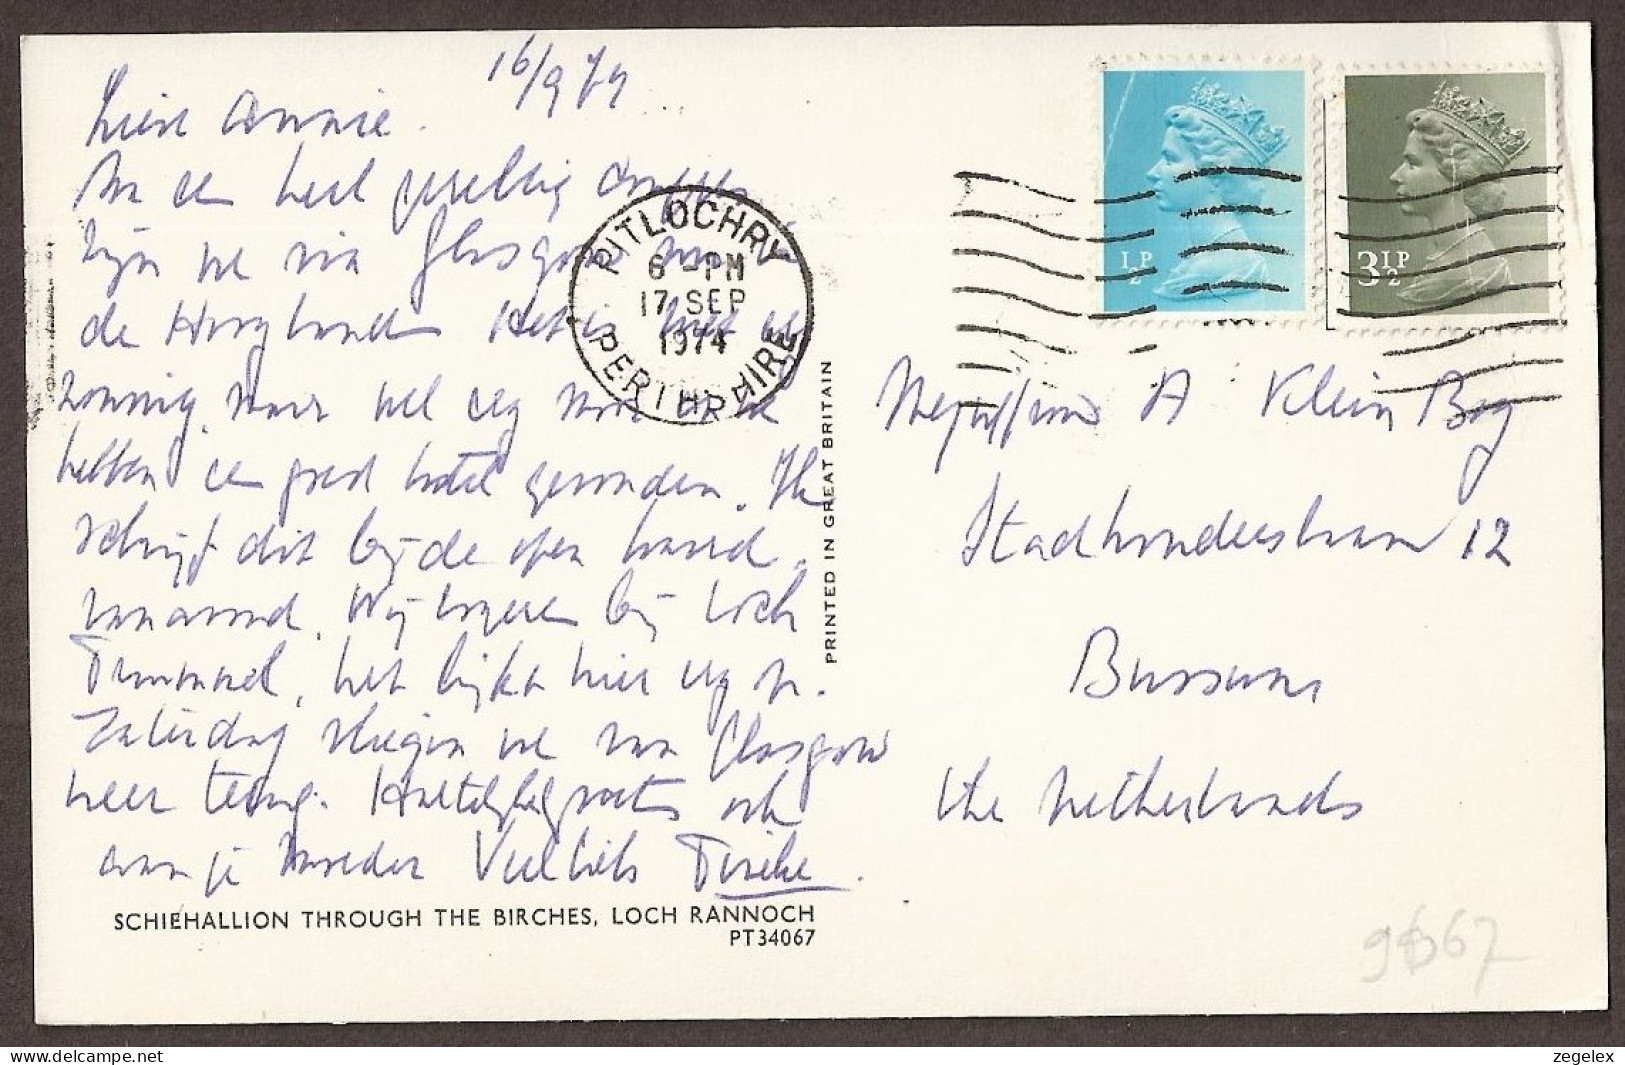 16/9 74
Lieve Annie.
Na een heel gezellig
zijn we via Glasgow naar
de Hooglanden Het is niet
zonnig, maar wel erg mooi en we
hebben een goed hotel gevonden. Ik
schrijf dit bij de open haard
vanavond. Wij logeren bij Loch
Tummel, het lijkt hier erg op.
Zaterdag vliegen we van Glasgow
weer terug. Hartelijke groeten ook
aan je moeder Veel liefs
SCHIEHALLION THROUGH THE BIRCHES, LOCH RANNOCH
PT34067
PRINTED IN GREAT BRITAIN
PITLOCHRY
6-PM
17 SEP
1974
PERTHSHIRE
½P
3½P
Mejuffrouw A Klein
Stadhouderslaan 12
Bussum
the Netherlands
zegelex
https://www.delcampe.net